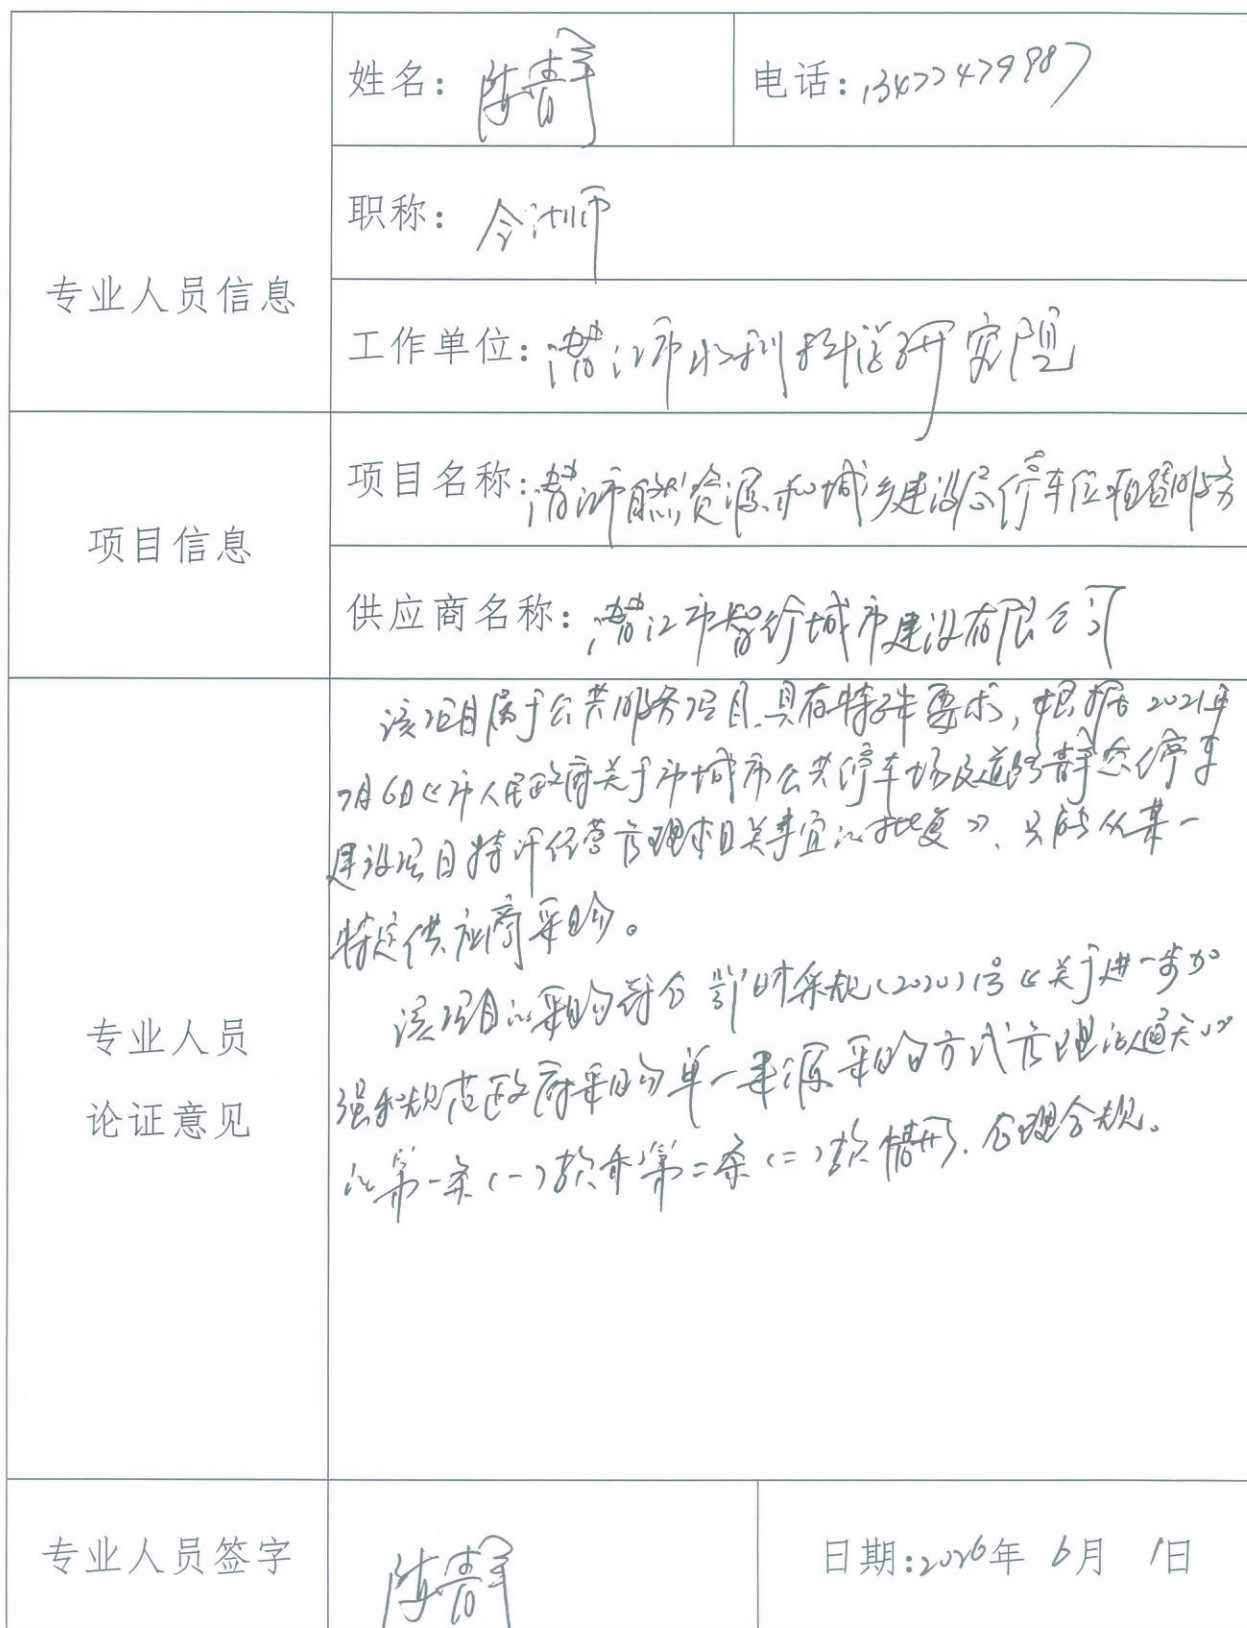 专业人员信息
姓名：陈静
电话：13477479987
职称：会计师
工作单位：潜江市水利科学研究院
项目信息
项目名称：潜江市自然资源和城乡建设局停车位租赁服务
供应商名称：潜江市智行城市建设有限公司
专业人员
论证意见
该项目属于公共服务项目，具有特殊要求，根据2021年
7月6日《市人民政府关于市城市公共停车场及道路静态停车
建设项目特许经营管理相关事宜的批复》，只能从某一
特定供应商采购。
该项目的采购符合鄂财采规(2020)1号《关于进一步加
强和规范政府采购单一来源采购方式管理的通知》
的第一条(一)款和第二条(二)款情形，合理合规。
专业人员签字
陈静
日期:2026年 6月 1日